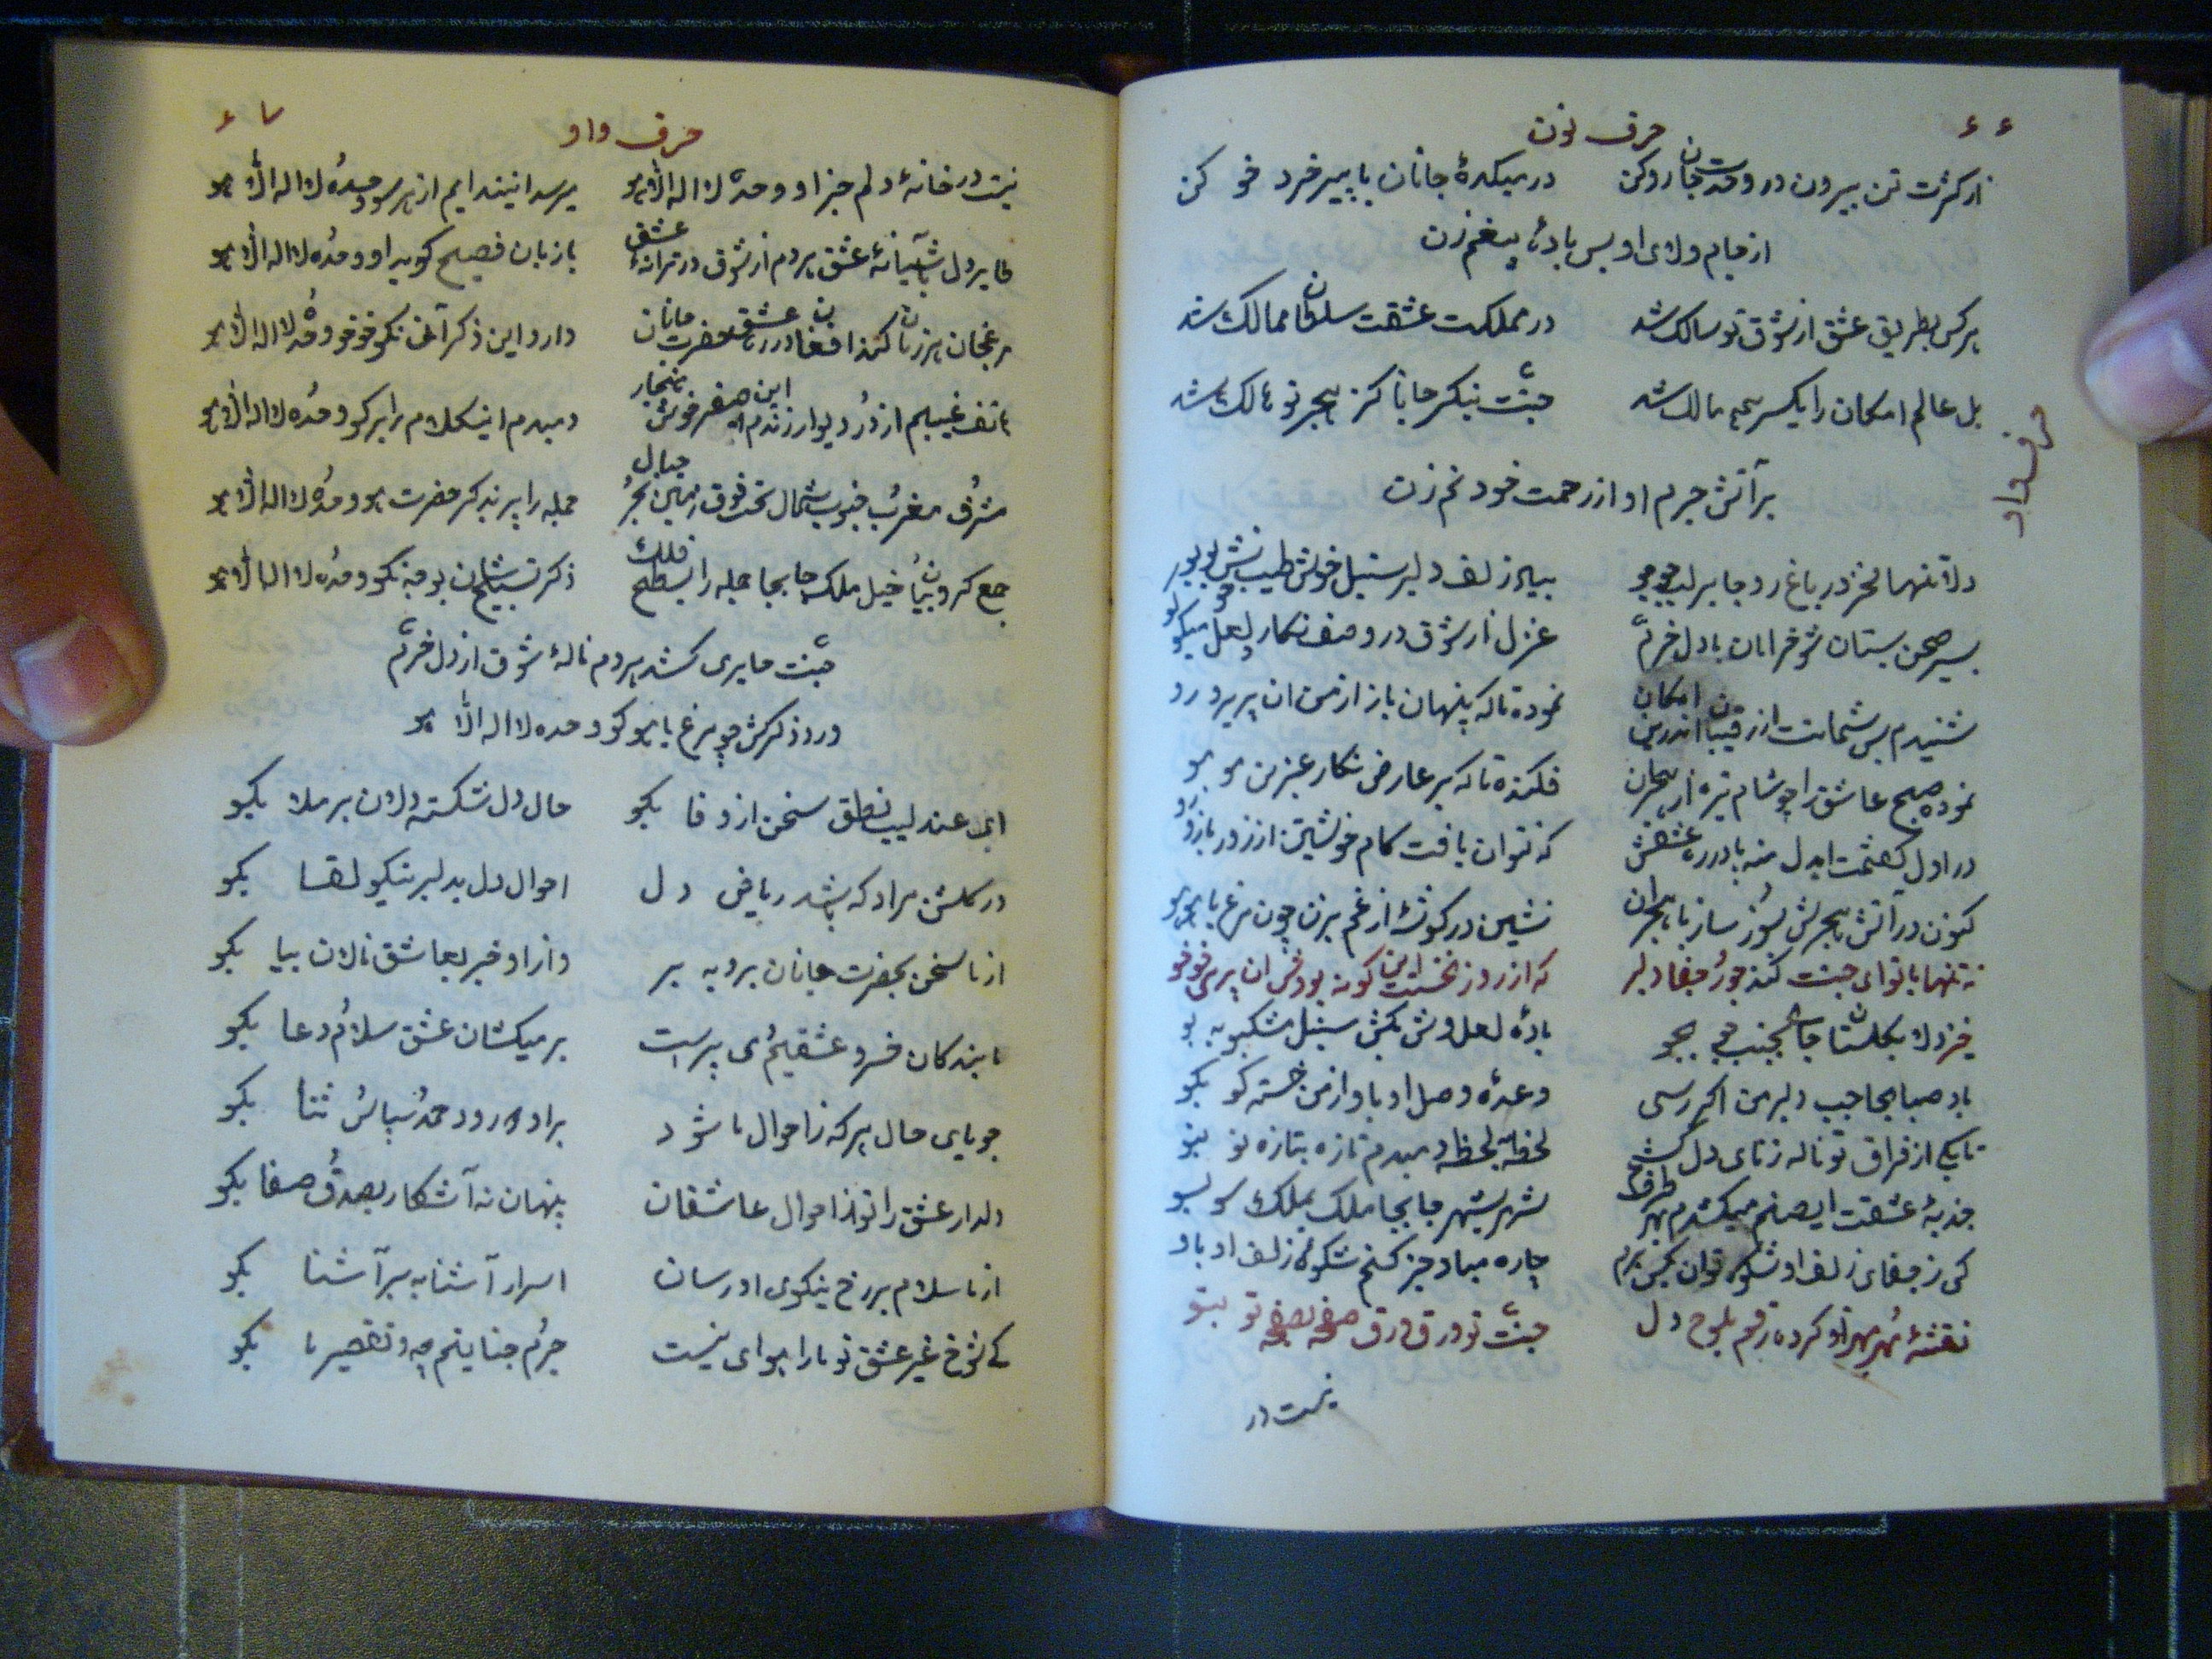 ۶۶
حرف نون
از کثرت تن بیرون در وحدت جان رو کن در میکدهٔ جانان با پیر خرد خو کن
از جام ولای او بس بادهٔ بیغم زن
هر کس بطریق عشق از شوق تو سالک شد در مملکت عشقت سلطان ممالک شد
بل عالم امکان را یکسر همه مالک شد جنّت بنگر جانا کز هجر تو هالک شد
بر آتش جرم او از رحمت خود نم زن
حرف واو
دلا تنها مخز در باغ رو جا بر لب جو جو
بسیر صحن بستان شو خرامان با دل خرّم غزل از شوق در وصف نکار لعل میکو کو
شنیدم بس شماتت از رقیبان اندرین امکان نموده تا که پنهان باز از من ان پریرو رو
نموده صبح عاشق را چو شام تیره از هجران فکنده تا که بر عارض نکار عنبرین مو مو
در اول گفتمت ایدل منه پا در ره عشقش که نتوان یافت کام خویشتن از زور بازو زو
کنون در آتش هجرش بسوز ساز با هجران نشین در کوشهٔ از غم بزن چون مرغ یا هو هو
نه تنها با تو ای جنت کند جور جفا دلبر که از روز نخست این کونه بودش ان پری خو خو
خیز دلا بکلستان جا بجنب جو بجو بادهٔ لعل وش بکش سنبل مشکبو به بو
باد صبا بحاجب دلبر من اکر رسی وعدهٔ وصل او باو از من خسته کو بکو
تا بکی از فراق تو ناله ز نای دل کشم لحظه بلحظه دمبدم تازه بتازه نو بنو
جذبهٔ عشقت ایصنم میکشدم بهر طرف شهر بشهر جا بجا ملک بملک سو بسو
کی ز جفای زلف او شکوه توان بکس برم چاره مباد جز کنم شکوهٔ زلف او باو
نقشهٔ مهر مهر او کرده رقم بلوح دل جنّت تو ورق ورق صفحه بصفحه تو بتو
نیست در
حرف واو
۶۷
نیست در خانهٔ دلم جز او وحده لا اله الّا هو میرسد این ندایم از هر سو وحده لا اله الّا هو
طایر دل بآشیانهٔ عشق هر دم از شوق در ترانهٔ عشق با زبان فصیح کوید او وحده لا اله الّا هو
مرغ جان هر زمان کند افغان در ره عشق حضرت جانان دارد این ذکر آن نکو خو خو وحده لا اله الّا هو
هاتف غیبیم از در و دیوار دمبدم اینکلام برابر کو وحده لا اله الّا هو
مشرق مغرب جنوب شمال تحت فوق زمین بحر جبال جمله را پر ز ذکر حضرت هو وحده لا اله الّا هو
جمع کروبیان خیل ملک جا بجا جمله را بسطح فلک ذکر تسبیحشان بوجه نکو وحده لا اله الّا هو
جنّت حایری کشد هر دم نالهٔ شوق از دل خرّم
ورد ذکرش چو مرغ یا هو کو وحده لا اله الّا هو
ای عندلیب نطق سخن از وفا بکو حال دل شکسته دلان بر ملا بکو
در کلشن مراد که باشد ریاض دل احوال دل بدلبر نیکو لقا بکو
از ما سخن بحضرت جانان برو به بر و از او خبر بعاشق نالان بیا بکو
ما بندکان فرد عشقیم می پرست بر میکشان عشق سلام دعا بکو
جویای حال هر که ز احوال ما شود بر او درود حمد سپاس ثنا بکو
دلدار عشق را تو ز احوال عاشقان پنهان نه آشکار بصدق صفا بکو
از ما سلام بر رخ نیکوی او رسان اسرار آشنا به بر آشنا بکو
کی شوخ غیر عشق تو ما را هوای نیست جرم جنایتم چه و تقصیر ما بکو